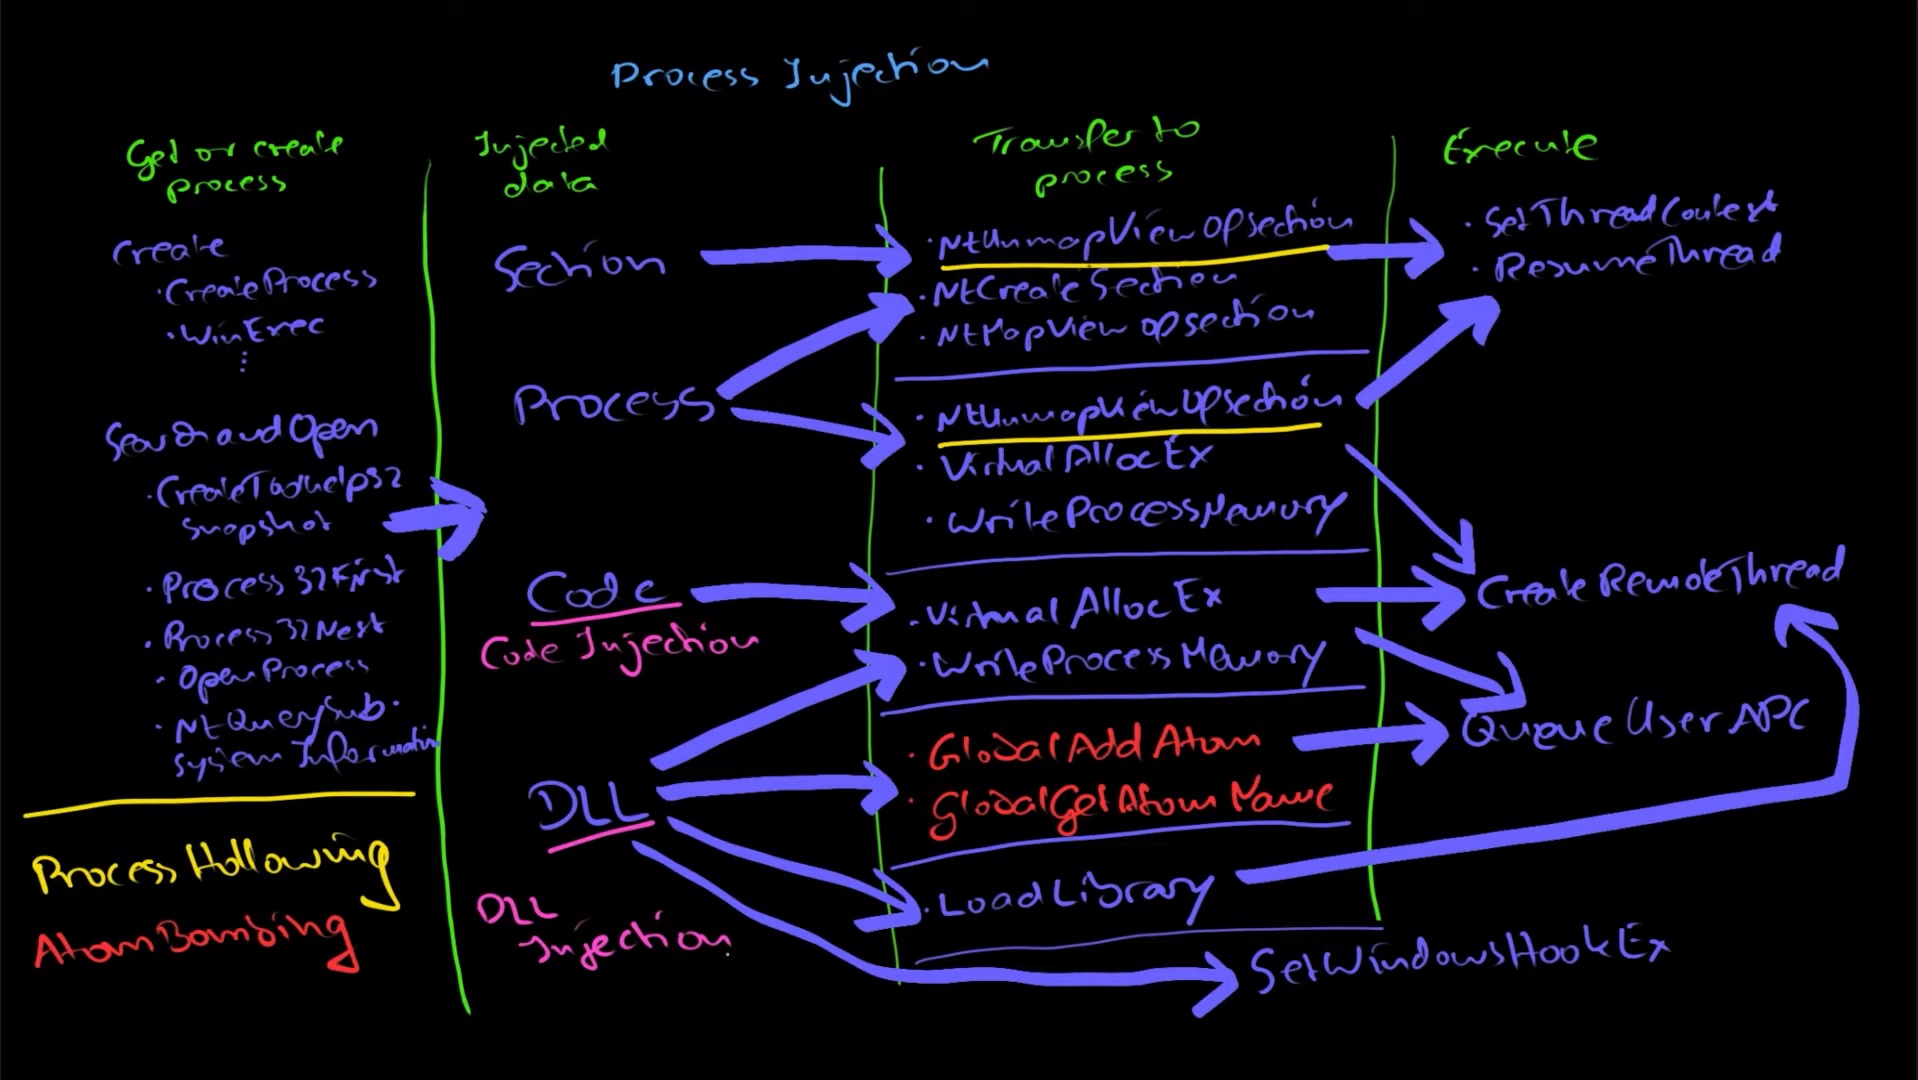 Process Injection
Get or create
process
Create
·CreateProcess
·WinExec
Search and Open
·CreateToolhelp32
Snapshot
·Process32First
·Process32Next
·OpenProcess
·NtQuery
System Information
Process Hollowing
AtomBombing
Injected
data
Section
Process
Code
Code Injection
DLL
DLL
Injection
Transfer to
process
·NtUnmapViewOfSection
·NtCreateSection
·NtMapViewOfSection
·NtUnmapViewOfSection
·VirtualAllocEx
·WriteProcessMemory
·VirtualAllocEx
·WriteProcessMemory
·GlobalAddAtom
·GlobalGetAtomName
·LoadLibrary
Execute
·SetThreadContext
·ResumeThread
CreateRemoteThread
QueueUserAPC
SetWindowsHookEx